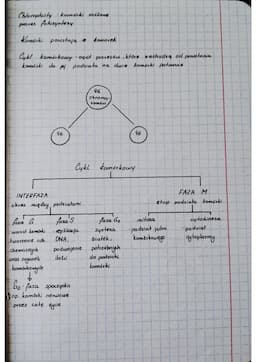 Chloroplasty : komórki roślinne
proces fotosyntezy
Komórki powstają z komórek
Cykl komórkowy - ogół procesów, które zachodzą od powstania
komórki do jej podziału na dwie komórki potomne
46
chromo-
somów
46
46
Cykl komórkowy
INTERFAZA
okres między podziałami
FAZA M
etap podziału komórki
faza G1
wzrost komórki
tworzenie
chemicznych
oraz organelli
komórkowych
faza S
replikacja
DNA,
podwojenie
ilości
faza G2
synteza
białek
potrzebnych
do podziału
komórki
mitoza
podział jądra
komórkowego
cytokineza
podział
cytoplazmy
G0 - faza spoczynku
np. komórki nerwowe
przez całe życie